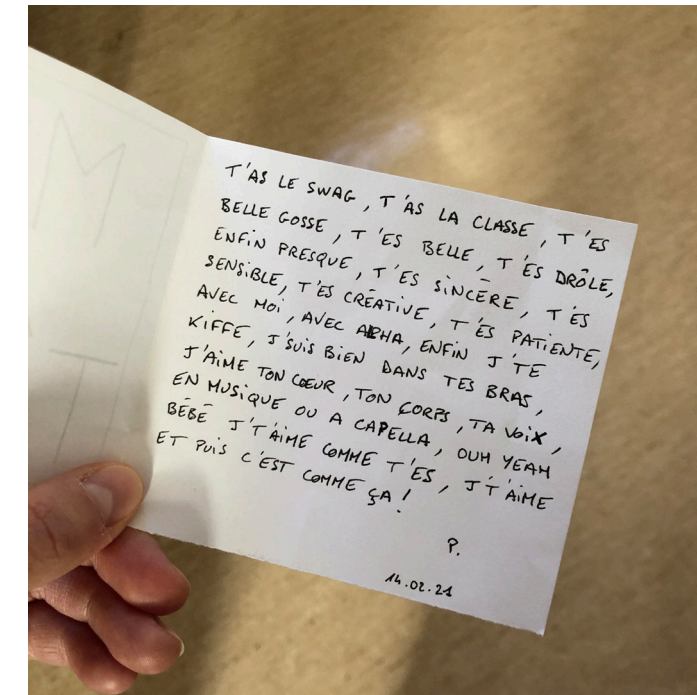 T'AS LE SWAG, T'AS LA CLASSE, T'ES
BELLE GOSSE, T'ES BELLE, T'ES DRÔLE,
ENFIN PRESQUE, T'ES SINCÈRE, T'ES
SENSIBLE, T'ES CRÉATIVE, T'ES PATIENTE,
AVEC MOI, AVEC ALPHA, ENFIN J'TE
KIFFE, J'SUIS BIEN DANS TES BRAS,
J'AIME TON CŒUR, TON CORPS, TA VOIX,
EN MUSIQUE OU A CAPELLA, OUH YEAH
BÉBÉ J'T'AIME COMME T'ES, J'T'AIME
ET PUIS C'EST COMME ÇA!
P.
14.02.21